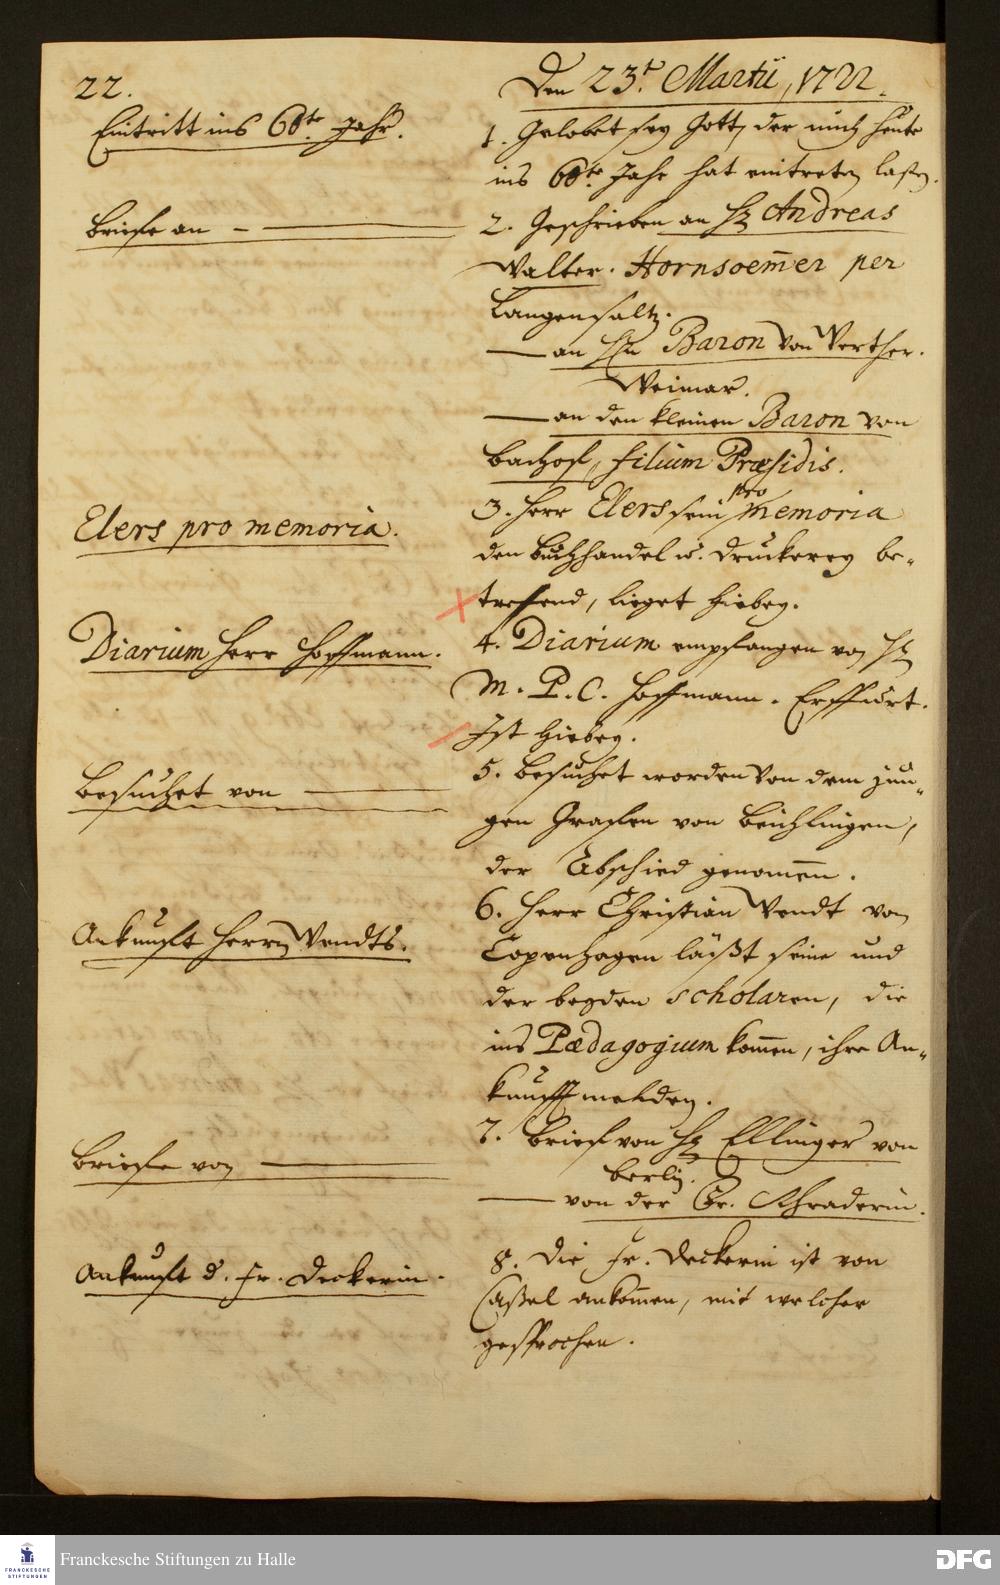 22.
Den 23.t Martii, 1722.
Eintritt ins 60te Jahr.
1. Gelobet sey Gott, der mich heute
ins 60te Jahr hat eintreten laßen.
Briefe an
2. Geschrieben an H. Andreas
Walter. Hornsoem̄er per
Langensaltz.
— an Hn Baron von Werther.
Weimar.
— an den kleinen Baron von
Bachof, filium Præsidis.
Elers pro memoria.
3. Herr Elers sein pro memoria
den Buchhandel u. Druckerey be-
treffend, lieget hiebey.
Diarium Herr Hoffmann.
4. Diarium empfangen von H.
M. P. C. Hoffmann. Erffurt.
Ist hiebey.
Besuchet von
5. Besuchet worden von dem jun-
gen Grafen von Beichlingen,
der Abschied genom̄en.
Ankunft Herrn Wendts.
6. Herr Christian Wendt von
Copenhagen läßt seine und
der beyden Scholaren, die
ins Pædagogium kom̄en, ihre An-
kunfft melden.
Briefe von
7. Brief von H. Ellinger von
Berlin.
— von der Fr. Schraderin.
Ankunft d. Fr. Deckerin.
8. Die Fr. Deckerin ist von
Caßel ankom̄en, mit welcher
gesprochen.
FRANCKESCHE
STIFTUNGEN
Franckesche Stiftungen zu Halle
DFG